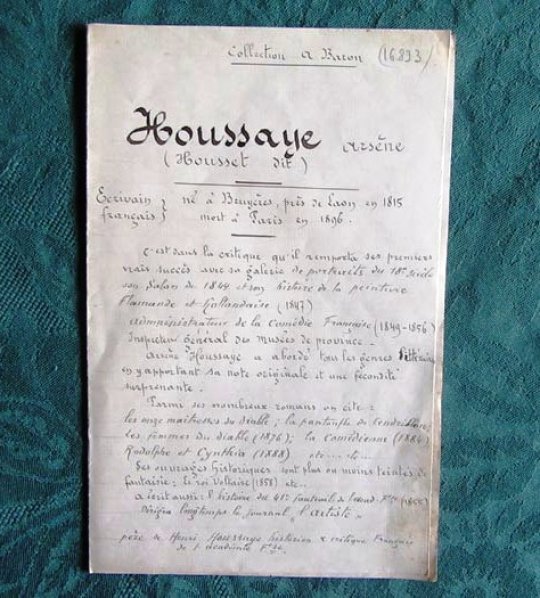 Collection A Baron (16893)
Houssaye Arsène
(Housset dit)
Ecrivain français } né à Bruyères, près de Laon en 1815
mort à Paris en 1896.
C'est dans la critique qu'il remporta ses premiers
vrais succès avec sa galerie de portraits du 18e siècle
son Salon de 1844 et son histoire de la peinture
Flamande et Hollandaise (1847)
administrateur de la Comédie Française (1849-1856)
Inspecteur Général des musées de province.
Arsène Houssaye a abordé tous les genres littéraires
en y apportant sa note originale et une fécondité
surprenante.
Parmi ses nombreux romans on cite :
les onze maitresses du diable ; la pantoufle de Cendrillon,
les femmes du diable (1876) ; la comédienne (1884)
Rodolphe et Cynthia (1888) etc... etc...
Ses ouvrages historiques sont plus ou moins teintés de
fantaisie : le roi Voltaire (1858) etc...
a écrit aussi : l'histoire du 41e fauteuil de l'acad. Fse (1855)
Dirigea longtemps le journal "l'artiste".
père de Henri Houssaye historien & critique Français
de l'académie Fse